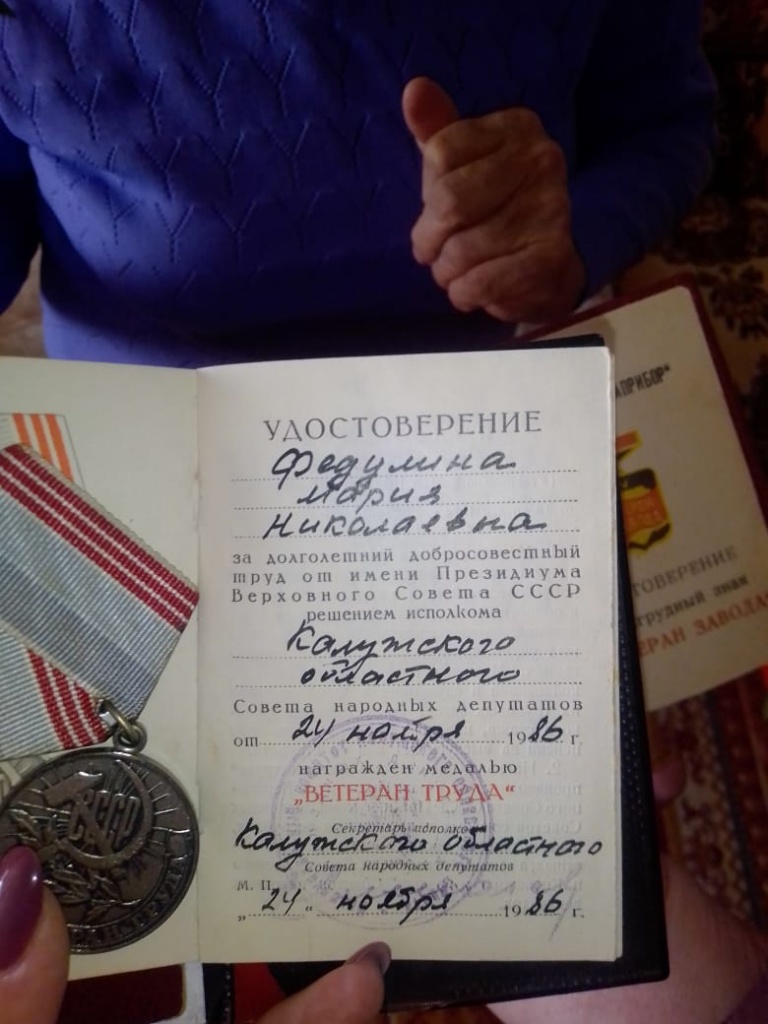 УДОСТОВЕРЕНИЕ
Федулина
Мария
Николаевна
за долголетний добросовестный
труд от имени Президиума
Верховного Совета СССР
решением исполкома
Калужского
областного
Совета народных депутатов
от 24 ноября 1986 г.
награжден медалью
„ВЕТЕРАН ТРУДА“
Секретарь исполкома
Калужского областного
Совета народных депутатов
М. П.
„24“ ноября 1986 г.
СССР
АПРИБОР"
ТОВЕРЕНИЕ
трудный знак
ЕРАН ЗАВОДА